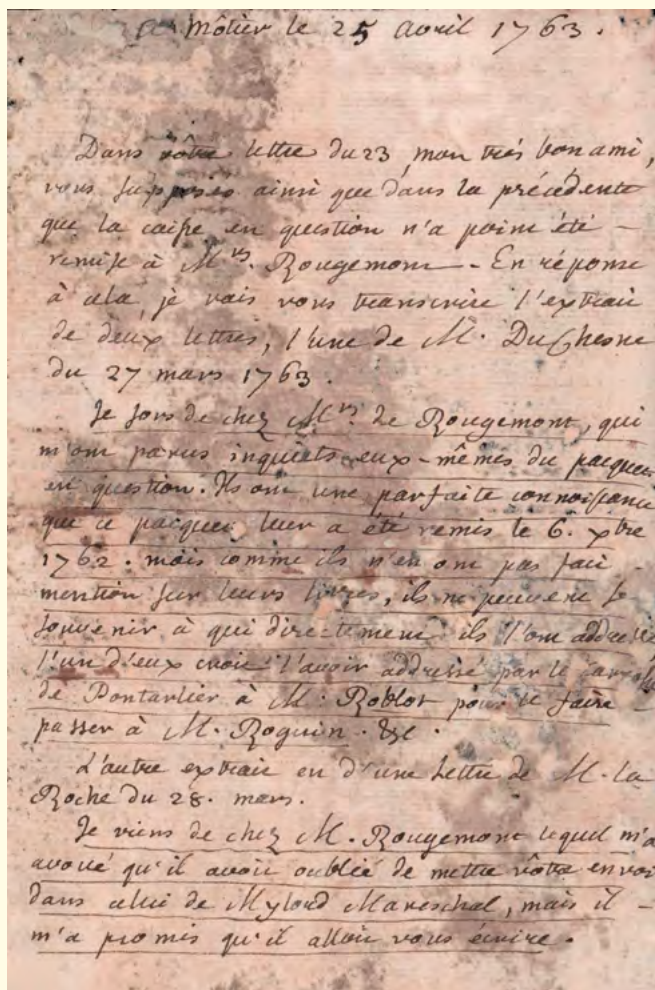 A Môtier le 25 avril 1763.
Dans vôtre lettre du 23, mon très bon ami,
vous supposés ainsi que dans la précédente
que la caisse en question n'a point été –
remise à Mrs. Rougemont – En réponse
à cela, je vais vous transcrire l'extrait
de deux lettres, l'une de M. DuChesne
du 27 mars 1763.
Je sors de chez Mrs. de Rougemont, qui
m'ont parus inquiets eux-mêmes du pacquet
en question. Ils ont une parfaite connoissance
que ce pacquet leur a été remis le 6. xbre
1762. mais comme ils n'en ont pas fait –
mention sur leurs livres, ils ne peuvent se
souvenir à qui directement ils l'ont addressé
l'un d'eux croit l'avoir addressé par le carosse
de Pontarlier à M. Roblot pour le faire
passer à M. Roguin. &c.
L'autre extrait est d'une lettre de M. la
Roche du 28. mars.
Je viens de chez M. Rougemont lequel m'a
avoué qu'il avoit oublié de mettre vôtre envoi
dans celui de Mylord Mareschal, mais il –
m'a promis qu'il alloit vous écrire.